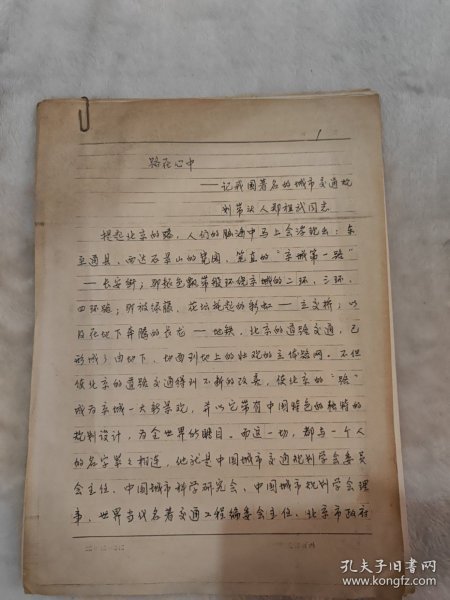 1
路在心中
——记我国著名的城市交通规
划带头人郑祖武同志
提起北京的路，人们的脑海中马上会浮现出：东
至通县，西达石景山的宽阔、笔直的“京城第一路”
——长安街；那银色飘带般环绕京城的二环、三环、
四环路；那被绿藤、花坛托起的彩虹——立交桥；以
及在地下奔腾的长龙——地铁，北京的道路交通，已
形成了由地下、地面到地上的壮观的立体路网。不但
使北京的道路交通得到不断的改善，使北京的“路”
成为京城一大新景观，并以它带有中国特色的独特的
规划设计，为全世界所瞩目。而这一切，都与一个人
的名字紧紧相连，他就是中国城市交通规划学会委员
会主任、中国城市科学研究会、中国城市规划学会理
事、世界当代名著交通工程编委会主任、北京市政府
孔夫子旧书网
www.kongfz.com